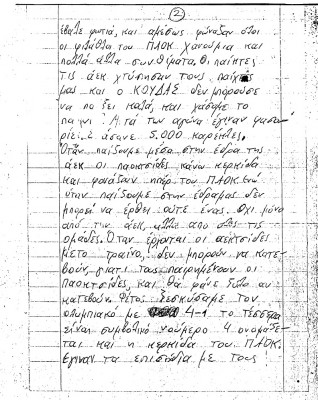 2
έβαλε φωτιά, και αμέσως φώναξαν όλοι
οι φίλαθλοι του ΠΑΟΚ χανούμια και
πολλά άλλα συνθήματα, Οι παίκτες
της άεκ χτύπησαν τους παίχτες
μας και ο ΚΟΥΔΑΣ δεν μπορούσε
να παίξει καλά, και χάσαμε το
παιχνί
τον αγώνα έγιναν φασα-
ρίες 5.000 καρέκλες.
Όταν παίζουμε μέσα στην έδρα της
άεκ οι παοκτσίδες κάνω κερκίδα
και φωνάζουν υπέρ του ΠΑΟΚ. Ενώ
όταν παίζουμε στην έδρα μας δεν
μπορεί να έρθει ούτε ένας. Όχι μόνο
από την άεκ, αλλά από όλες τις
ομάδες. Όταν έρχονται οι αεκτσίδες
με το τραίνο, δεν μπορούν να κατε-
βούν, γιατί τους περιμένουν οι
παοκτσίδες και θα φάνε ξύλο αν
κατεβούν. Φέτος ξεσκίσαμε τον
ολυμπιακό με 4-1 το τέσσερα
είναι συμβολικό νούμερο 4 ονομάζε-
ται και η κερκίδα του ΠΑΟΚ.
Έγιναν τα επεισόδια με τους